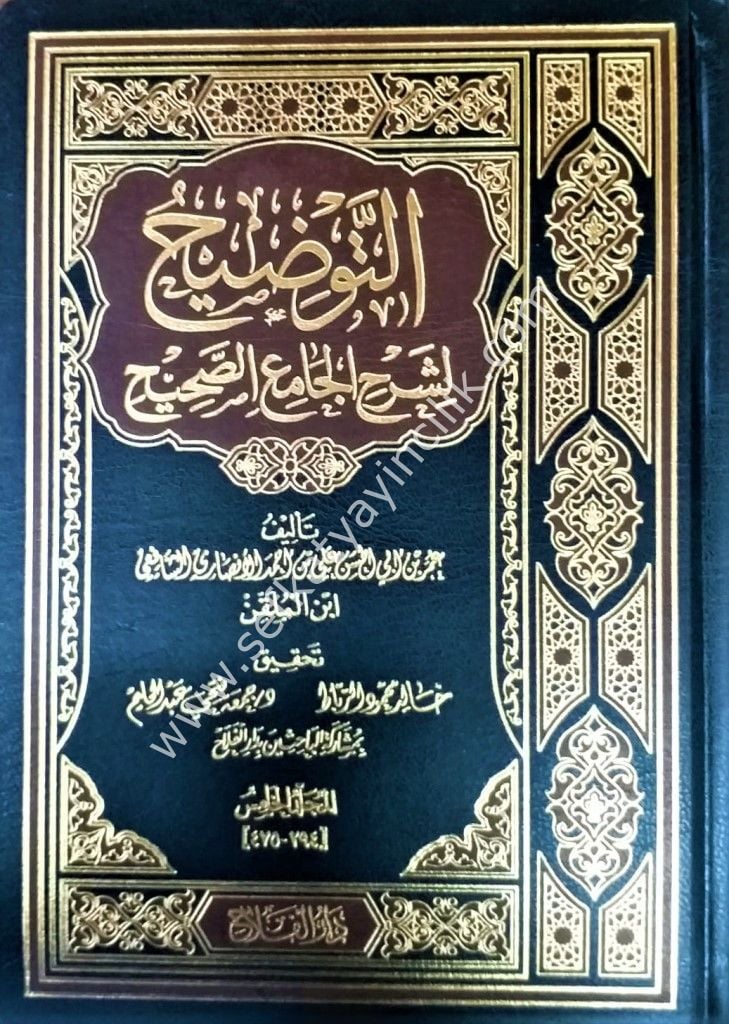 التَّوْضِيحُ
لِشَرْحِ الجَامِعِ الصَّحِيْحِ
تَألِيْفُ
عمر بن أبي الحسن علي بن أحمد الأنصاري الشافعي
ابن المُلَقِّنْ
تحقيق
خالد محمود الرباط
د/جمعة فتحي عبد الحليم
بمشاركة الباحثين بدار الفلاح
المجلد الخامس
[٣٩٤-٤٧٥]
دَارُ الفَلَاح
www.serkatyayincilik.com